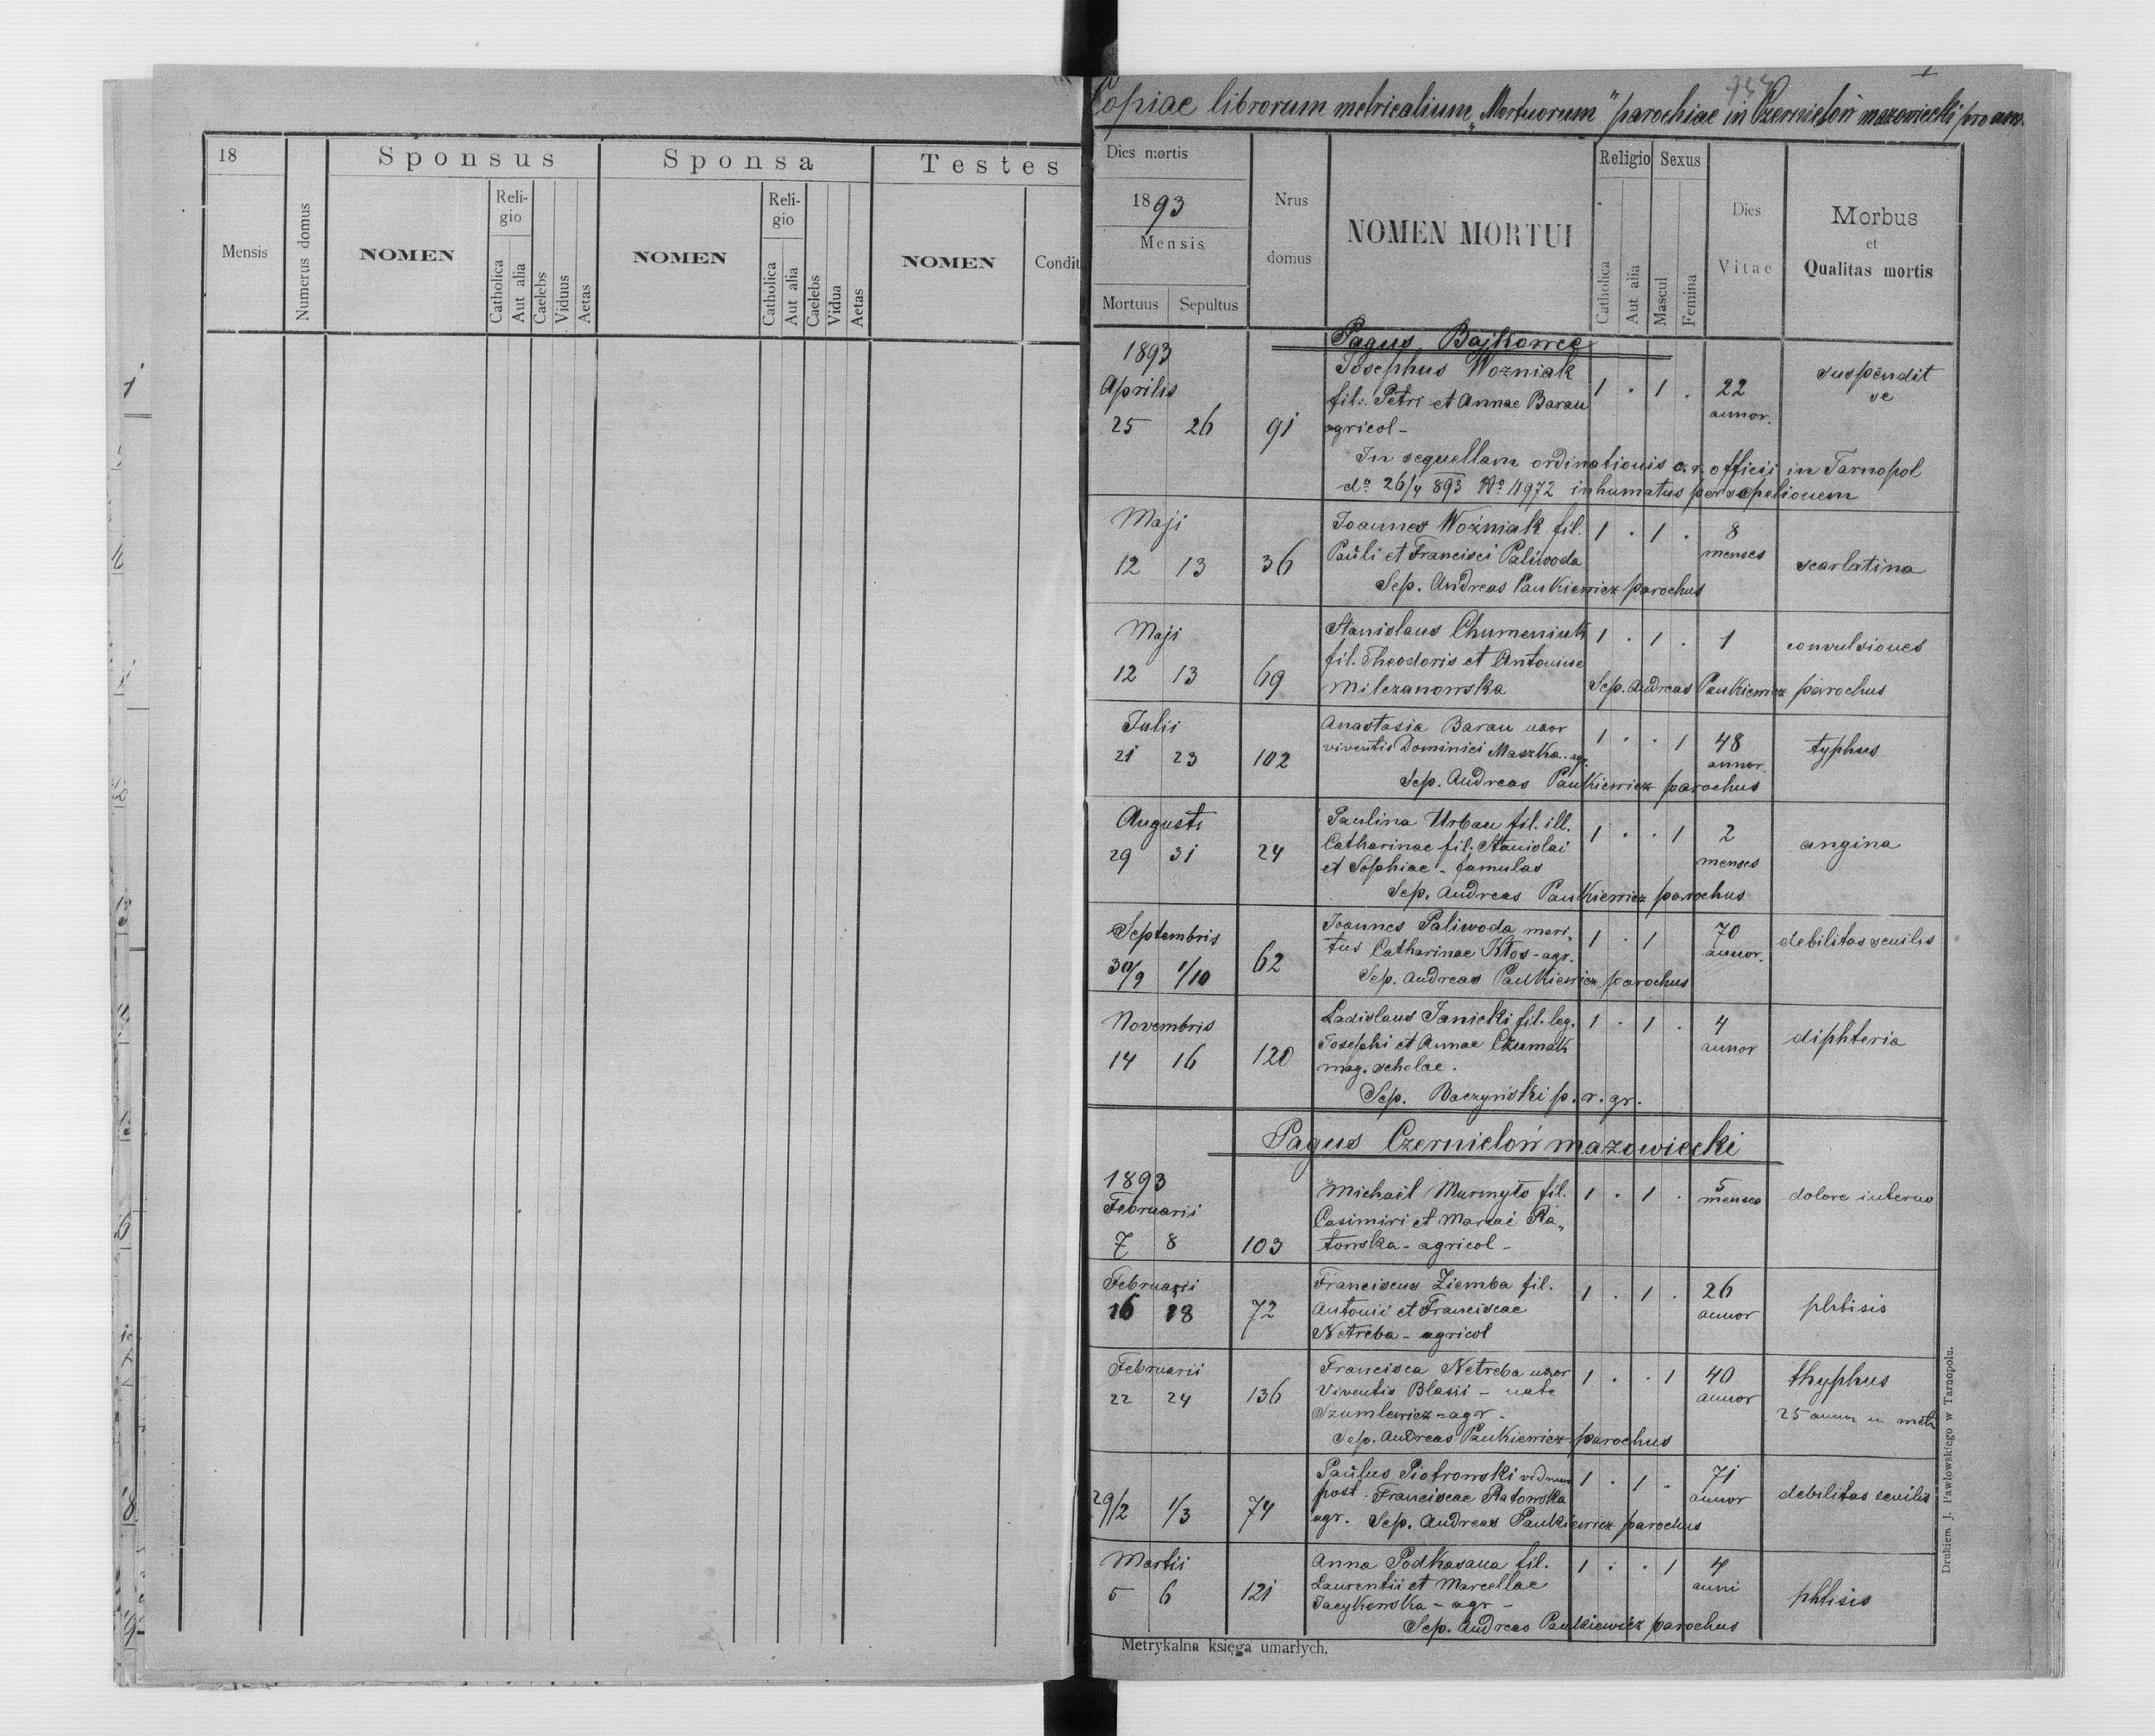 18
Mensis
Numerus domus
Sponsus
NOMEN
Reli-
gio
Catholica
Aut alia
Caelebs
Viduus
Aetas
Sponsa
NOMEN
Reli-
gio
Catholica
Aut alia
Caelebs
Vidua
Aetas
Testes
NOMEN
Condit
Copiae librorum metricalium "Mortuorum" parochiae in Czernielów mazowiecki pro ann.
Dies mortis
1893
Mensis
Mortuus Sepultus
Nrus
domus
NOMEN MORTUI
Religio
Catholica
Aut alia
Sexus
Mascul
Femina
Dies
Vitae
Morbus
et
Qualitas mortis
Pagus Bajkowce
1893
Aprilis
25 26 91
Josephus Wozniak
fil: Petri et Annae Baran
agricol-
1 . 1 . 22
annor.
suspendit
se
In sequellam ordinationis c. r. officii in Tarnopol
do 26/4 893 No 11972 inhumatus per
Maji
12 13 36
Joannes Woźniak fil.
Pauli et Francisci Paliwoda
1 . 1 . 8
menses
scarlatina
Sep. Andreas Paukiewicz parochus
Maji
12 13 69
Stanislaus Chumeniuk
fil. Theodoris et Antoniae
Milczanowska
1 . 1 . 1
convulsiones
Sep. Andreas Paukiewicz parochus
Julii
21 23 102
Anastasia Baran uxor
viventis Dominici Maszka. agr.
1 . . 1 48
annor.
typhus
Sep. Andreas Paukiewicz parochus
Augusti
29 31 24
Paulina Urban fil. ill.
Catharinae fil. Stanislai
et Sophiae - famulas
1 . . 1 2
menses
angina
Sep. Andreas Paukiewicz parochus
Septembris
30/9 1/10 62
Joannes Paliwoda mari„
tus Catharinae Kłos - agr.
1 . 1 70
annor.
debilitas senilis
Sep. Andreas Paukiewicz parochus
Novembris
14 16 120
Ladislaus Janicki fil. leg.
Josephi et Annae Czumak
mag. scholae.
1 . 1 . 4
annor
diphteria
Sep. Baczyński p. r. gr.
Pagus Czernielów mazowiecki
1893
Februarii
7 8 103
Michaël Murmyło fil.
Casimiri et Mariae Ra„
towska - agricol -
1 . 1 . 5
menses
dolore interno
Februarii
16 18 72
Franciscus Ziemba fil.
Antonii et Franciscae
Netreba - agricol
1 . 1 . 26
annor
phtisis
Februarii
22 24 136
Francisca Netreba uxor
viventis Blasii - nate
Szumlewicz - agr -
1 . . 1 40
annor
thyphus
25 annor
Sep. Andreas Paukiewicz parochus
29/2 1/3 74
Paulus Piotrowski viduus
post. Franciscae Ratowska
agr. Sep. Andreas Paukiewicz parochus
1 . 1 . 71
annor
debilitas senilis
Martii
5 6 121
Anna Podkasana fil.
Laurentii et Marcellae
Jacykowska - agr -
1 . . 1 4
anni
phtisis
Sep. Andreas Paukiewicz parochus
Metrykalna księga umarłych.
Drukiem J. Pawłowskiego w Tarnopolu.